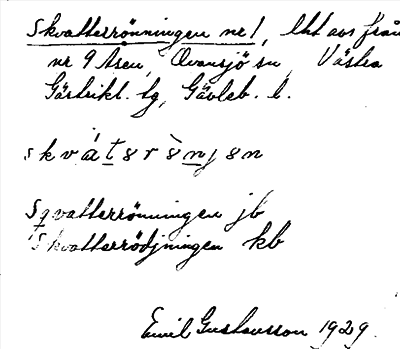 Skvatterrönningen nr 1, lht avs från
nr 9 Åsen, Ovansjö sn, Västra
Gästrikl. tg, Gävleb. l.
Sqvatterrönningen jb
Skvatterrödjningen kb
Emil Gustavsson 1929.